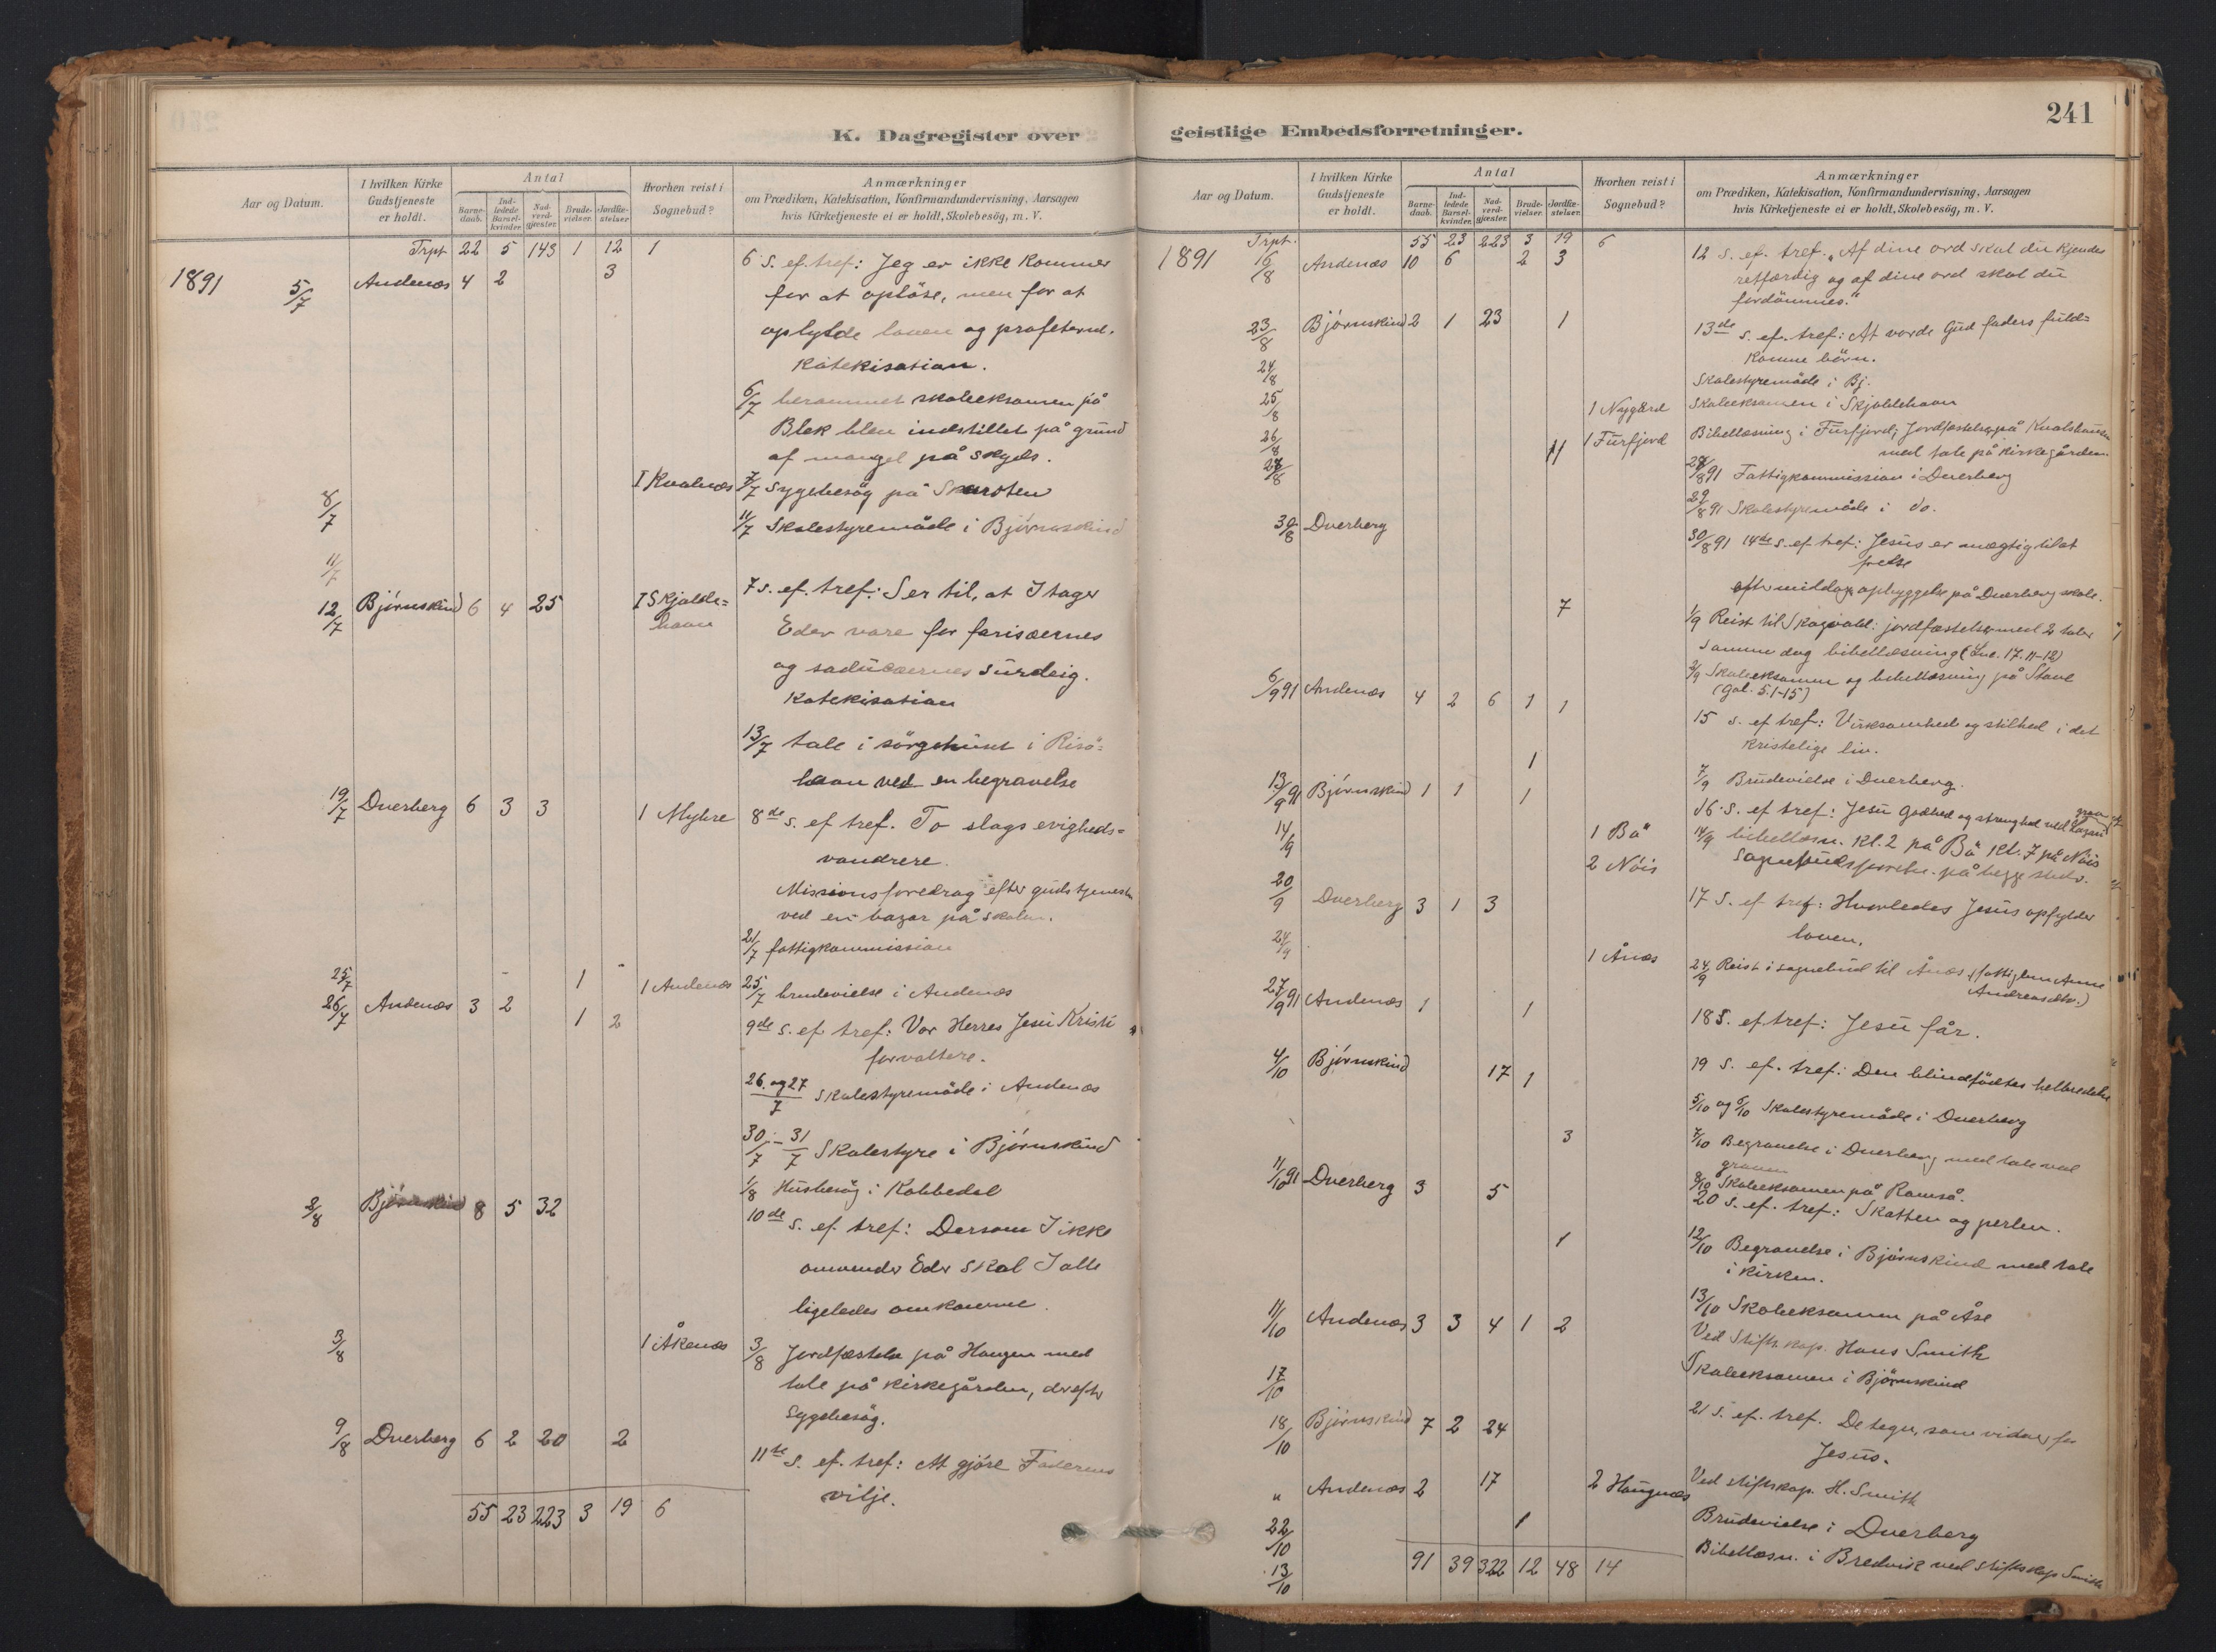 K. Dagregister over
Aar og Datum.
I hvilken Kirke Gudstjeneste er holdt.
Antal
Barne-daab.
Ind-ledede Barsel-kvinder.
Nad-verd-gjæster.
Brude-vielser.
Jordfæ-stelser.
Hvorhen reist i Sognebud?
Anmærkninger
om Prædiken, Katekisation, Konfirmandundervisning, Aarsagen
hvis Kirketjeneste ei er holdt, Skolebesög, m. V.
Trpt. 22 5 143 1 12 1
1891 5/7 Andenæs 4 2 3 6 s. ef. tref: Jeg er ikke kommer
for at opløse, men for at
oplylde loven og profeterne.
Katekisation.
6/7 berammet skoleeksamen på
Blek blev indstillet på grund
af mangel på skyds.
8/7 1 Kvalnæs 7/7 Sygebesøg på
11/7 11/7 Skolestyremøde i Bjørnskind
12/7 Bjørnskind 6 4 25 1 Skjolde=
havn 7 s. ef. tref: Ser til, at I tager
Eder vare for farisæernes
og saducæernes surdeig.
Katekisation
13/7 tale i sørgehuset i Risø=
havn ved en begravelse
19/7 Dverberg 6 3 3 1 Myhre 8de s. ef tref. To slags evigheds=
vandrere.
Missionsforedrag efter gudstjenesten
ved en bazar på skolen.
21/7 fattigkommission
25/7 1 1 Andenæs 25/7 brudevielse i Andenæs
26/7 Andenæs 3 2 1 2 9de s. ef tref: Vor Herres Jesu Kristi
forvaltere.
26. og 27/7 Skolestyremøde i Andenæs
30/7 - 31/7 Skolestyre i Bjørnskind
1/8 Husbesøg i Kobbedal
2/8 Bjørnskind 8 5 32 10de s. ef tref: Dersom I ikke
omvender Eder skal I alle
ligeledes omkomme.
3/8 1 Åkenæs 3/8 Jordfæstelse på Haugen med
tale på kirkegården, derefter
Sygebesøg.
9/8 Dverberg 6 2 20 2 11te s. ef. tref: At gjøre Faderens
vilje.
55 23 223 3 19 6
geistlige Embedsforretninger.
241
Aar og Datum.
I hvilken Kirke Gudstjeneste er holdt.
Antal
Barne-daab.
Ind-ledede Barsel-kvinder.
Nad-verd-gjæster.
Brude-vielser.
Jordfæ-stelser.
Hvorhen reist i Sognebud?
Anmærkninger
om Prædiken, Katekisation, Konfirmandundervisning, Aarsagen
hvis Kirketjeneste ei er holdt, Skolebesög, m. V.
Trpt. 55 23 223 3 19 6
1891 16/8 Andenæs 10 6 2 3 12 s. ef. tref. "Af dine ord skal du kjendes
retfærdig og af dine ord skal du
fordømmes."
23/8 Bjørnskind 2 1 23 1 13de s. ef. tref: At vorde Gud faders fuld=
komne børn.
24/8 Skolestyremøde i Bj.
25/8 1 Nygård Skoleeksamen i Skjoldehavn
26/8 11 1 Furfjord Bibellæsning i Furfjord; Jordfæstelse på
med tale på kirkegården.
28/8 28/8 91 Fattigkommission i Dverberg
29/8 91 Skolestyremøde i do.
30/8 Dverberg 30/8 91 14de s. ef tref: Jesus er mægtig til at
frelse
eftermiddag opbyggelse på Dverberg skole.
7 1/9 Reist til Skogvold: jordfæstelse med 2 taler
Samme dag bibellæsning (Luc. 17. 11-12)
2/9 Skoleeksamen og bibellæsning på Stave
(Gal. 5. 1-15)
6/9 91 Andenæs 4 2 6 1 1 15 s. ef tref: Virksomhed og stilhed i det
kristelige liv.
1 7/9 Brudevielse i Dverberg.
13/9 91 Bjørnskind 1 1 1 16 s. ef tref: Jesu Godhed og strenghed ved Lazari grav
14/9 1 Bø 14/9 bibellæsn. kl. 2 på Bø kl. 7 på Nöis
2 Nöis Sognebudsforretn. på begge steder.
20/9 Dverberg 3 1 3 17 s. ef tref: Hvorledes Jesus opfylder
loven.
24/9 1 Ånæs 24/9 Reist i sognebud til Ånæs (fattiglem Anne
Andreasdtr.)
27/9 91 Andenæs 1 1 18 s. ef tref: Jesu får.
4/10 Bjørnskind 17 1 19 s. ef. tref: Den blindfødtes helbredelse
5/10 og 6/10 Skolestyremøde i Dverberg
3 7/10 Begravelse i Dverberg med tale ved
graven
8/10 Skoleeksamen på Ramså.
11/10 91 Dverberg 3 5 20 s. ef. tref: Skatten og perlen.
1 12/10 Begravelse i Bjørnskind med tale
i kirken.
13/10 Skoleeksamen på Åse
11/10 Andenæs 3 3 4 1 2 Ved Stiftskap. Hans Smith
17/10 Skoleeksamen i Bjørnskind
18/10 Bjørnskind 7 2 24 21 s. ef. tref. De tegn, som vidner for
Jesus.
" Andenæs 2 17 2 Haugnæs Ved stiftskap. H. Smith
22/10 1 Brudevielse i Dverberg
13/10 Bibellæsn. i Bredvik ved stiftskap Smith
91 39 322 12 48 14